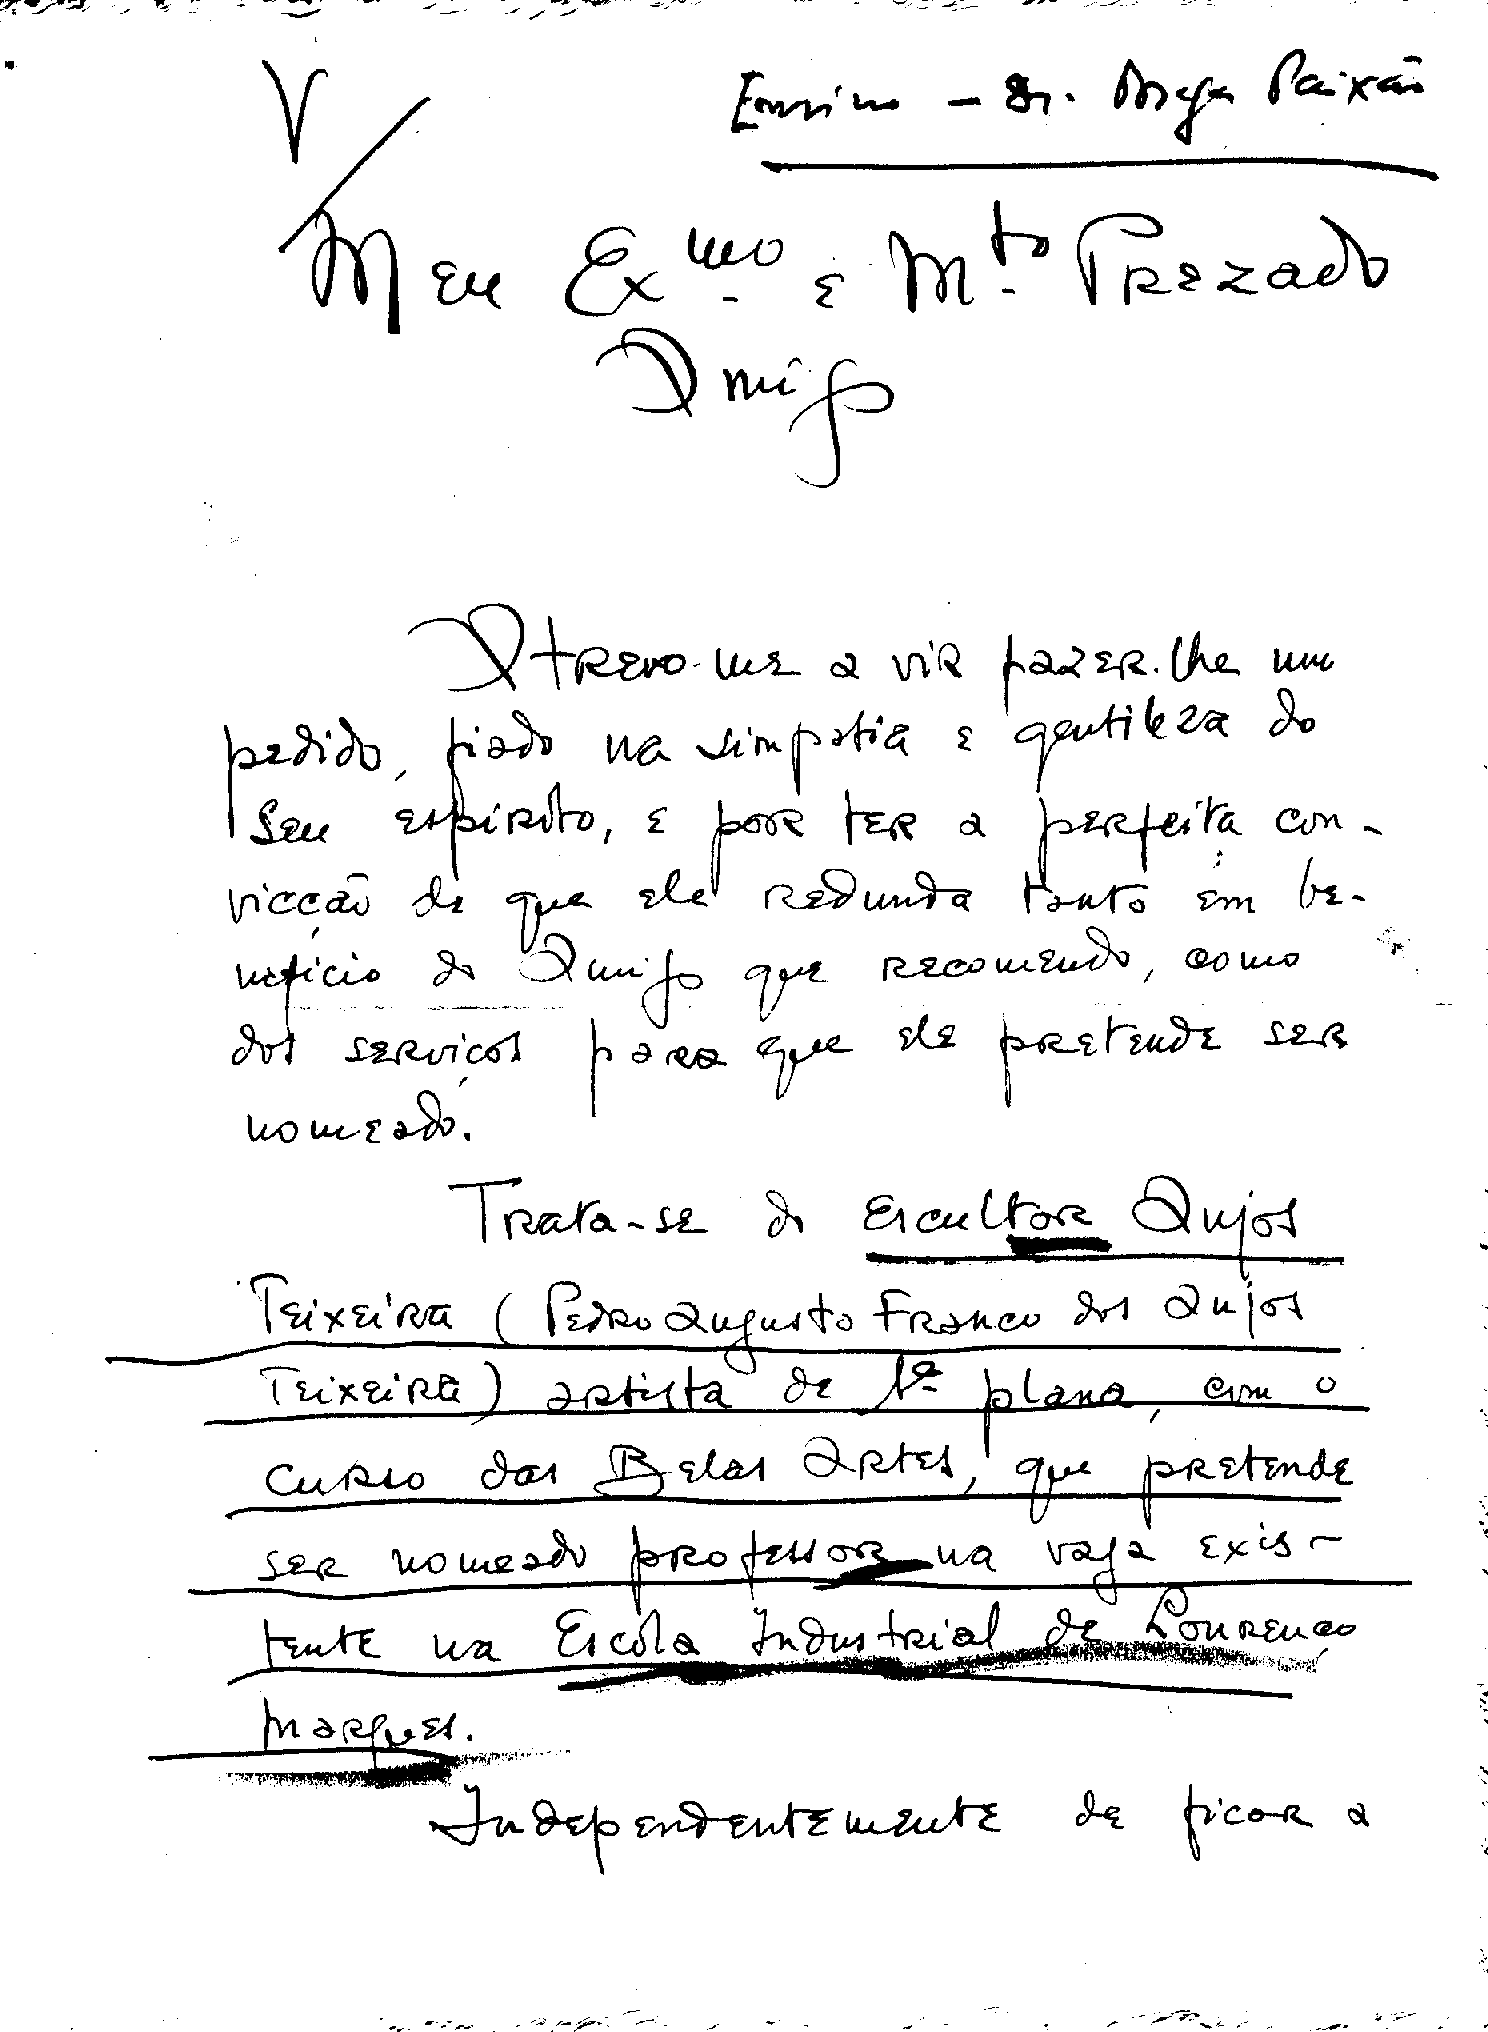 V
Ensino - Dr. Braga Paixão
Meu Exmo. e Mto. Prezado
Amigo
Atrevo-me a vir fazer-lhe um
pedido, fiado na simpatia e gentileza do
seu espírito, e por ter a perfeita con-
vicção de que ele redunda tanto em be-
nefício do Amigo que recomendo, como
dos serviços para que ele pretende ser
nomeado.
Trata-se do escultor Anjos
Teixeira (Pedro Augusto Franco dos Anjos
Teixeira) artista de 1º plano, com o
curso das Belas Artes, que pretende
ser nomeado professor na vaga exis-
tente na Escola Industrial de Lourenço
Marques.
Independentemente de ficar a